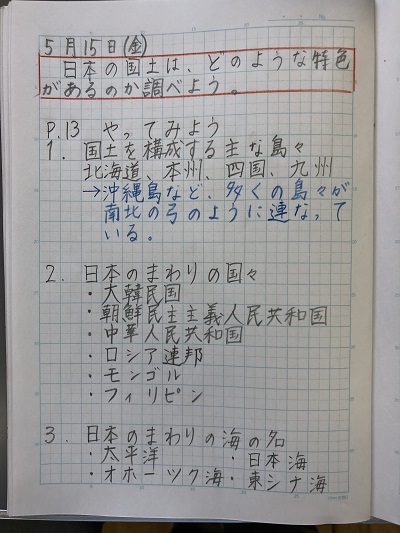 5月15日(金)
日本の国土は、どのような特色
があるのか調べよう。
P.13 やってみよう
1. 国土を構成する主な島々
北海道、本州、四国、九州
→沖縄島など、多くの島々が
南北の弓のように連なって
いる。
2. 日本のまわりの国々
・大韓民国
・朝鮮民主主義人民共和国
・中華人民共和国
・ロシア連邦
・モンゴル
・フィリピン
3. 日本のまわりの海の名
・太平洋 ・日本海
・オホーツク海 ・東シナ海